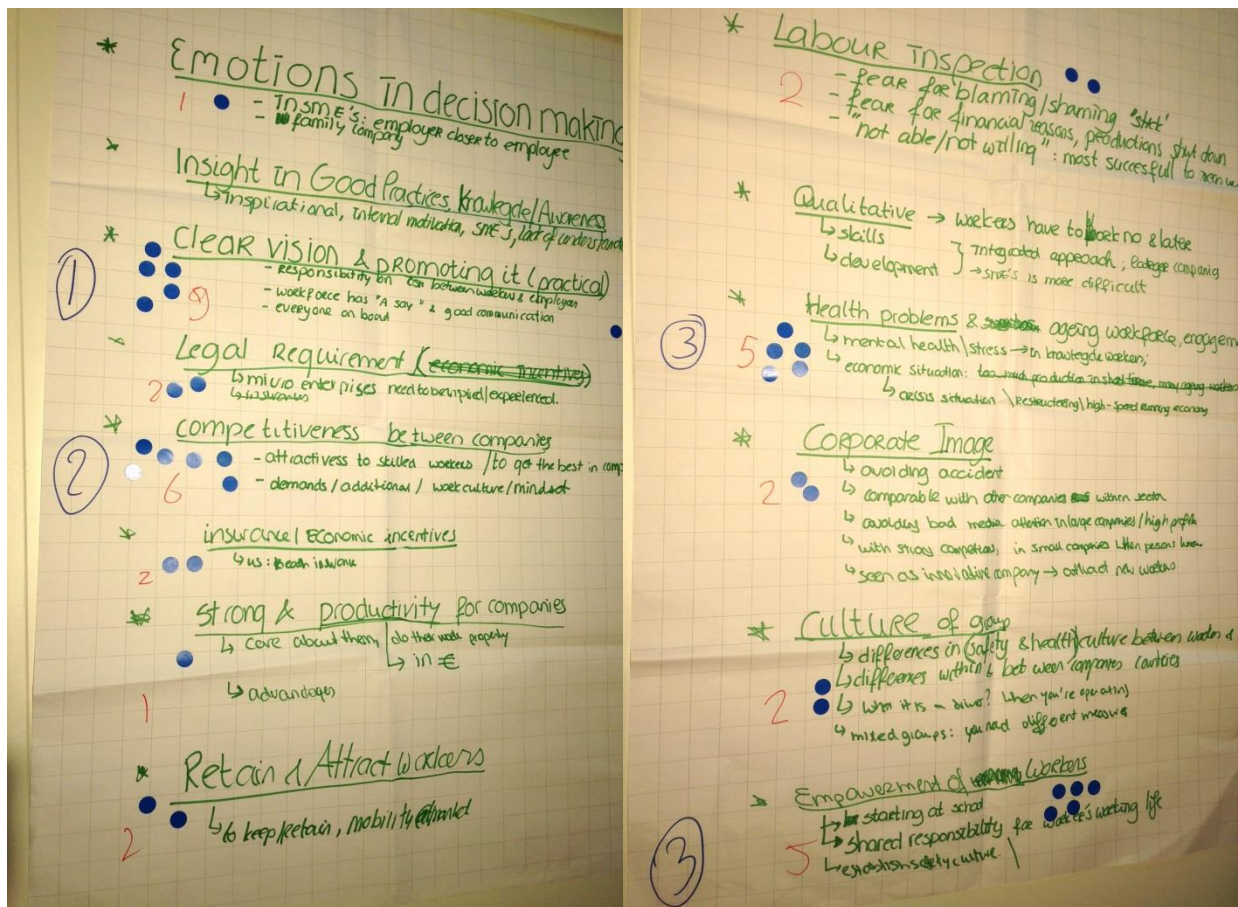 * Emotions in decision making
1 - in SME's: employer closer to employee
- family company
* Insight in Good Practices, Knowlegde/Awareness
↳ inspirational, internal motivation, SME's, lack of
* Clear vision & promoting it (practical)
- responsibility on between workers & employers
1 - workforce has "A say" & good communication
9 - everyone on board
Legal Requirement (economic incentives)
↳ micro enterprises need to be
2 ↳ insurances
* competitiveness between companies
2 - attractivess to skilled workers / to get the best in comp
6 - demands / additional / work culture / mindset
* insurance / Economic incentives
2 ↳ US:
* Strong & productivity for companies
↳ care about them, do their work properly
↳ in €
1 ↳ advantages
* Retain & Attract workers
2 ↳ to keep/retain, mobility
* Labour inspection
2 - fear for blaming/shaming "stick"
- fear for financial reasons, productions shut down
- "not able/not willing": most succesfull to
* Qualitative → workers have to work no & later
↳ skills
↳ development } Integrated approach;
→ SME's is more difficult
* Health problems & ageing workforce, engagem
3 5 ↳ mental health \ stress → in knowlegde workers;
↳ economic situation: too much production in
↳ crisis situation \ Restructering \ high-speed running economy
* Corporate Image
↳ avoiding accident
2 ↳ comparable with other companies within sector
↳ avoiding bad media attention in large companies / high profile
↳ with strong competition, in small companies
↳ seen as innovative company → attract new workers
* Culture of group
↳ differences in (safety & health) culture between
↳ differences within & between companies
2 ↳ When it is a driver? When you're operating
↳ mixed groups: you need different measures
Empowerment of Workers
↳ starting at school
5 ↳ shared responsibility for worker's working life
3 ↳ establish safety culture